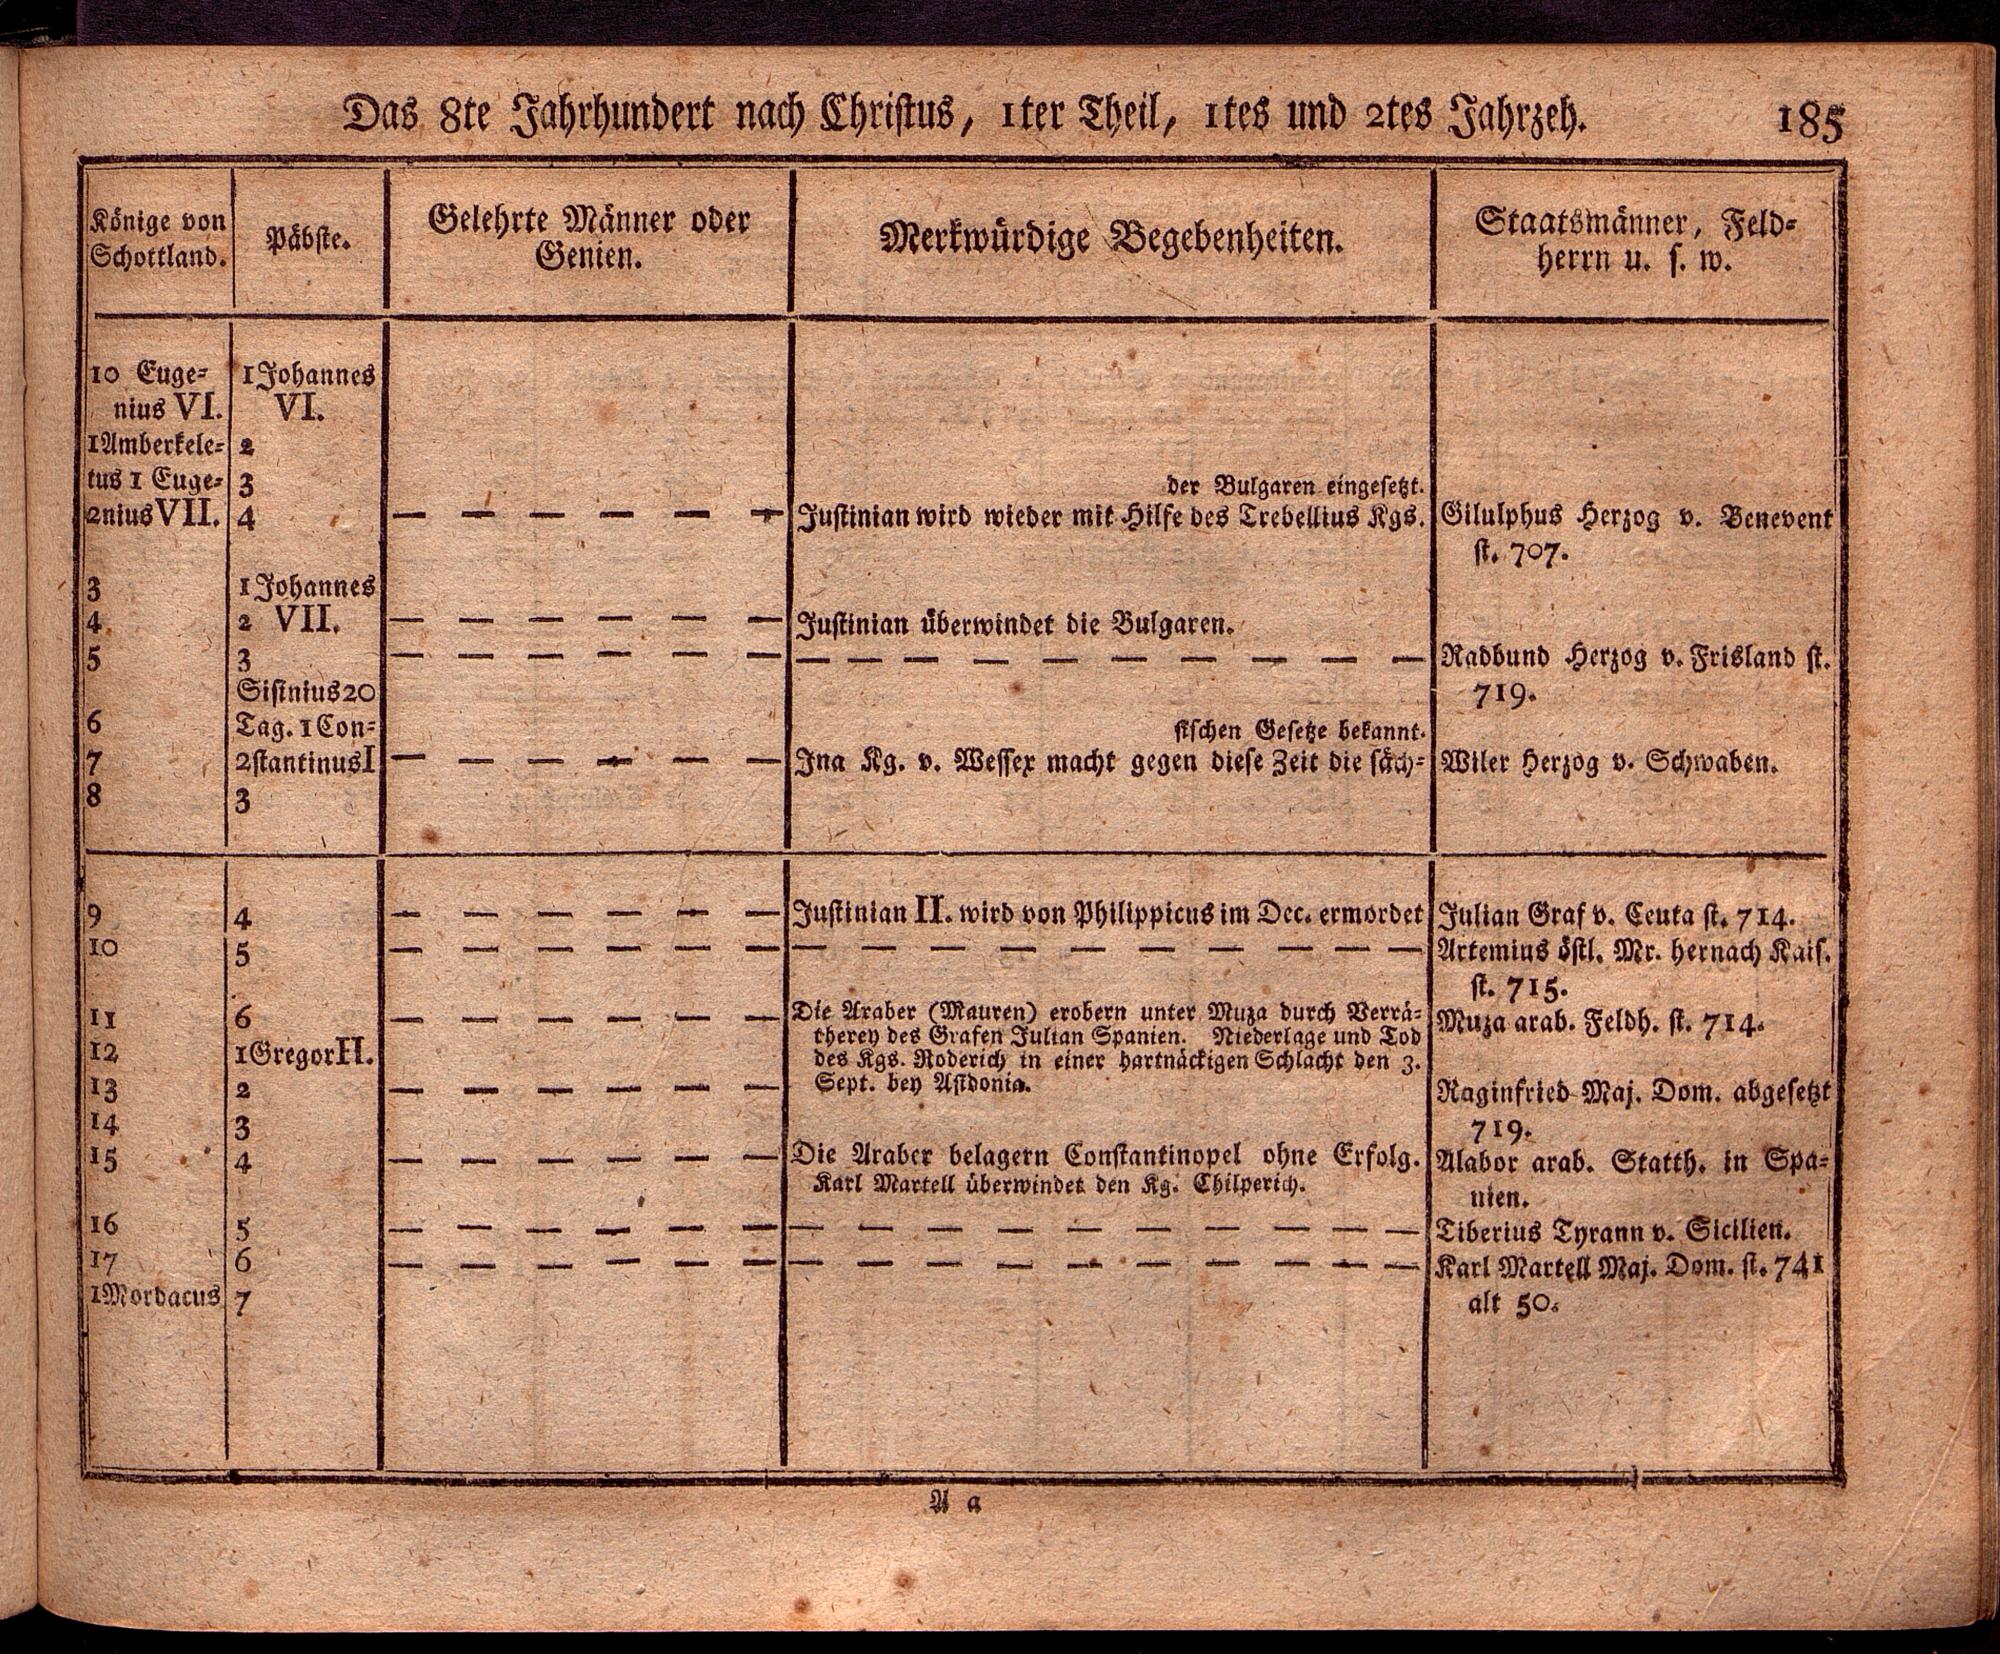 Das 8te Jahrhundert nach Christus, 1ter Theil, 1tes und 2tes Jahrzeh. 185
Könige von
Schottland.
Päbste.
Gelehrte Männer oder
Genien.
Merkwürdige Begebenheiten.
Staatsmänner, Feld-
herrn u. s. w.
10 Euge-
nius VI.
1Amberkele-
tus 1 Euge-
2nius VII.
3
4
5
6
7
8
1 Johannes
VI.
2
3
4
1 Johannes
2 VII.
3
Sisinius 20
Tag. 1 Con-
2stantinus I
3
— — — — — —
— — — — — —
— — — — — —
— — — — — —
der Bulgaren eingesetzt.
Justinian wird wieder mit Hilfe des Trebellius Kgs.
Justinian überwindet die Bulgaren.
— — — — — — — — — —
sischen Gesetze bekannt.
Ina Kg. v. Wessex macht gegen diese Zeit die säch-
Gilulphus Herzog v. Benevent
st. 707.
Radbund Herzog v. Frisland st.
719.
Wiler Herzog v. Schwaben.
9
10
11
12
13
14
15
16
17
1Mordacus
4
5
6
1Gregor II.
2
3
4
5
6
7
— — — — — —
— — — — — —
— — — — — —
— — — — — —
— — — — — —
— — — — — —
— — — — — —
Justinian II. wird von Philippicus im Dec. ermordet
— — — — — — — — — —
Die Araber (Mauren) erobern unter Muza durch Verrä-
therey des Grafen Julian Spanien. Niederlage und Tod
des Kgs. Roderich in einer hartnäckigen Schlacht den 3.
Sept. bey Asidonia.
Die Araber belagern Constantinopel ohne Erfolg.
Karl Martell überwindet den Kg. Chilperich.
— — — — — — — — — —
— — — — — — — — — —
Julian Graf v. Ceuta st. 714.
Artemius östl. Mr. hernach Kais.
st. 715.
Muza arab. Feldh. st. 714.
Raginfried Maj. Dom. abgesetzt
719.
Alabor arab. Statth. in Spa-
nien.
Tiberius Tyrann v. Sicilien.
Karl Martell Maj. Dom. st. 741
alt 50.
A a